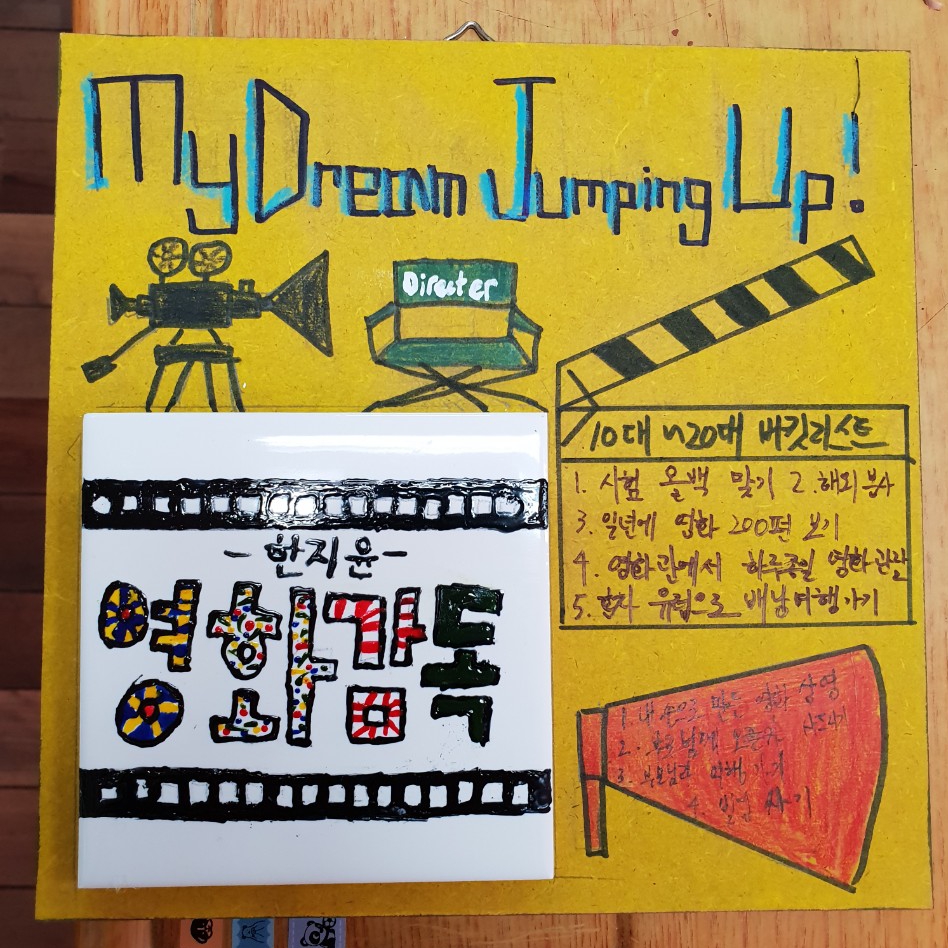 My Dream Jumping Up!
Directer
10대~20대 버킷리스트
1. 시험 올백 맞기 2. 해외 봉사
3. 일년에 영화 200편 보기
4. 영화관에서 하루종일 영화관람
5. 혼자 유럽으로 배낭여행가기
-한지윤-
영화감독
1. 내 손으로 만든 영화 상영
2. 부모님께 오픈카 사드리기
3. 부모님과 여행가기
4. 빌딩 사기